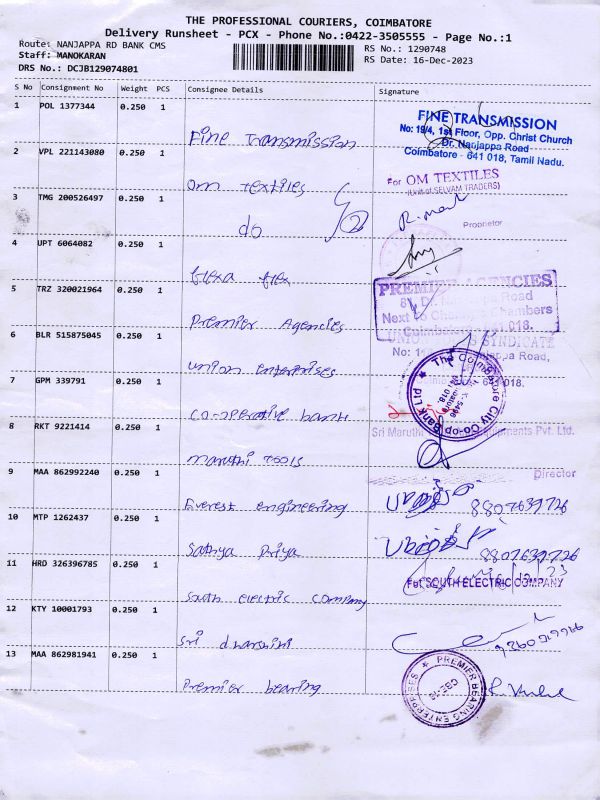 THE PROFESSIONAL COURIERS, COIMBATORE
Delivery Runsheet - PCX - Phone No.:0422-3505555 - Page No.:1
Route: NANJAPPA RD BANK CMS
RS No.: 1290748
Staff: MANOKARAN
RS Date: 16-Dec-2023
DRS No.: DCJB129074801
S No Consignment No Weight PCS Consignee Details Signature
1 POL 1377344 0.250 1 Fine Transmission
FINE TRANSMISSION
No: 19/4, 1st Floor, Opp. Christ Church
Dr. Nanjappa Road
Coimbatore - 641 018, Tamil Nadu.
2 VPL 221143080 0.250 1 Om textiles
For OM TEXTILES
(Unit of SELVAM TRADERS)
Proprietor
3 TMG 200526497 0.250 1 do
4 UPT 6064082 0.250 1 flexa flex
5 TRZ 320021964 0.250 1 Premier Agencies
PREMIER AGENCIES
Nanjappa Road
Next to Chambers
Coimbatore 018.
6 BLR 515875045 0.250 1 union enterprises
UNION SYNDICATE
Road,
641018.
7 GPM 339791 0.250 1 co-operative bank
The Coimbatore City Co-op Bank Ltd
8 RKT 9221414 0.250 1 maruthi tools
Sri Maruthi Equipments Pvt. Ltd.
Director
9 MAA 862992240 0.250 1 Everest engineering
8807639726
10 MTP 1262437 0.250 1 Sathya Priya
8807639726
11 HRD 326396785 0.250 1 South electric company
For SOUTH ELECTRIC COMPANY
12 KTY 10001793 0.250 1 Sri dharshini
13 MAA 862981941 0.250 1 Premier bearing
PREMIER BEARING ENTERPRISES
CBE-18